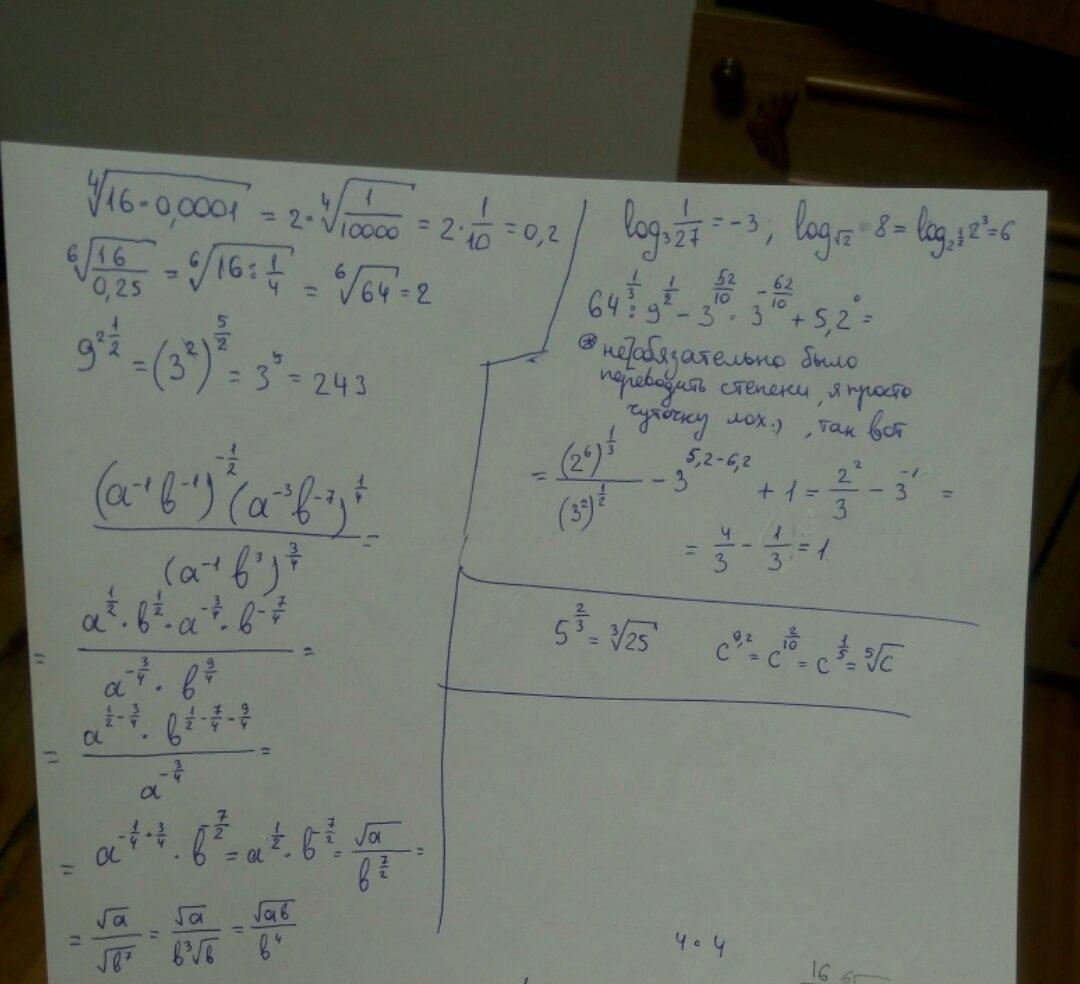 ⁴√(16·0,0001) = 2·⁴√(1/10000) = 2·1/10 = 0,2
⁶√(16/0,25) = ⁶√(16:1/4) = ⁶√64 = 2
9^(2 1/2) = (3²)^(5/2) = 3⁵ = 243
(a⁻¹b⁻¹)^(-1/2) (a⁻³b⁻⁷)^(1/4) / (a⁻¹b³)^(3/4) =
= a^(1/2)·b^(1/2)·a^(-3/4)·b^(-7/4) / a^(-3/4)·b^(9/4) =
= a^(1/2-3/4)·b^(1/2-7/4-9/4) / a^(-3/4) =
= a^(-1/4+3/4)·b^(-7/2) = a^(1/2)·b^(-7/2) = √a / b^(7/2) =
= √a/√b⁷ = √a/b³√b = √ab/b⁴
log₃ 1/27 = -3; log_√2 8 = log_2^(1/2) 2³ = 6
64^(1/3) : 9^(1/2) - 3^(52/10) · 3^(-62/10) + 5,2⁰ =
* не обязательно было
переводить степени, я просто
чуточку лох:), так вот
= (2⁶)^(1/3) / (3²)^(1/2) - 3^(5,2-6,2) + 1 = 2²/3 - 3⁻¹ =
= 4/3 - 1/3 = 1
5^(2/3) = ³√25 c^0,2 = c^(2/10) = c^(1/5) = ⁵√c
4·4
16